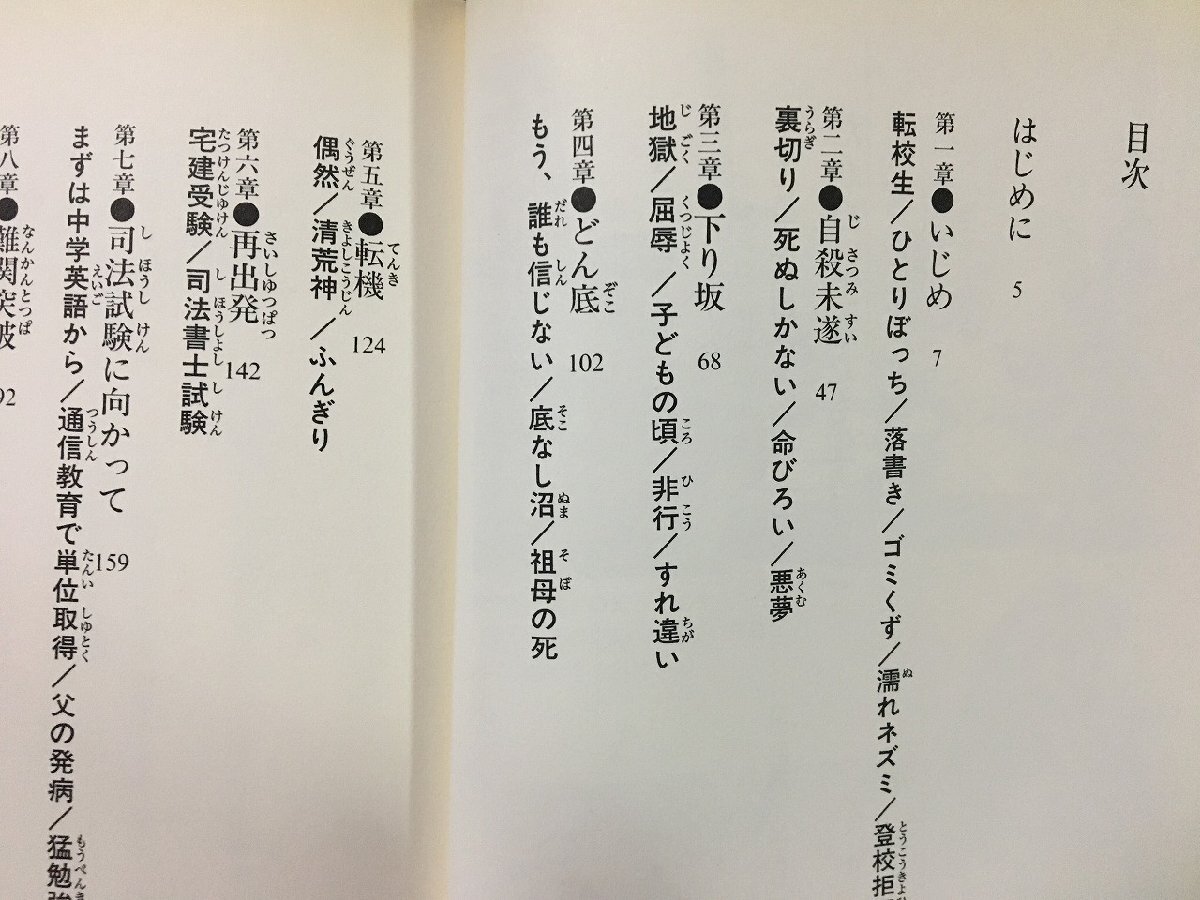 目次
はじめに 5
第一章●いじめ 7
転校生/ひとりぼっち/落書き/ゴミくず/濡れネズミ/登校拒
第二章●自殺未遂 47
裏切り/死ぬしかない/命びろい/悪夢
第三章●下り坂 68
地獄/屈辱/子どもの頃/非行/すれ違い
第四章●どん底 102
もう、誰も信じない/底なし沼/祖母の死
第五章●転機 124
偶然/清荒神/ふんぎり
第六章●再出発 142
宅建受験/司法書士試験
第七章●司法試験に向かって 159
まずは中学英語から/通信教育で単位取得/父の発病/猛勉強
第八章●難関突破 92